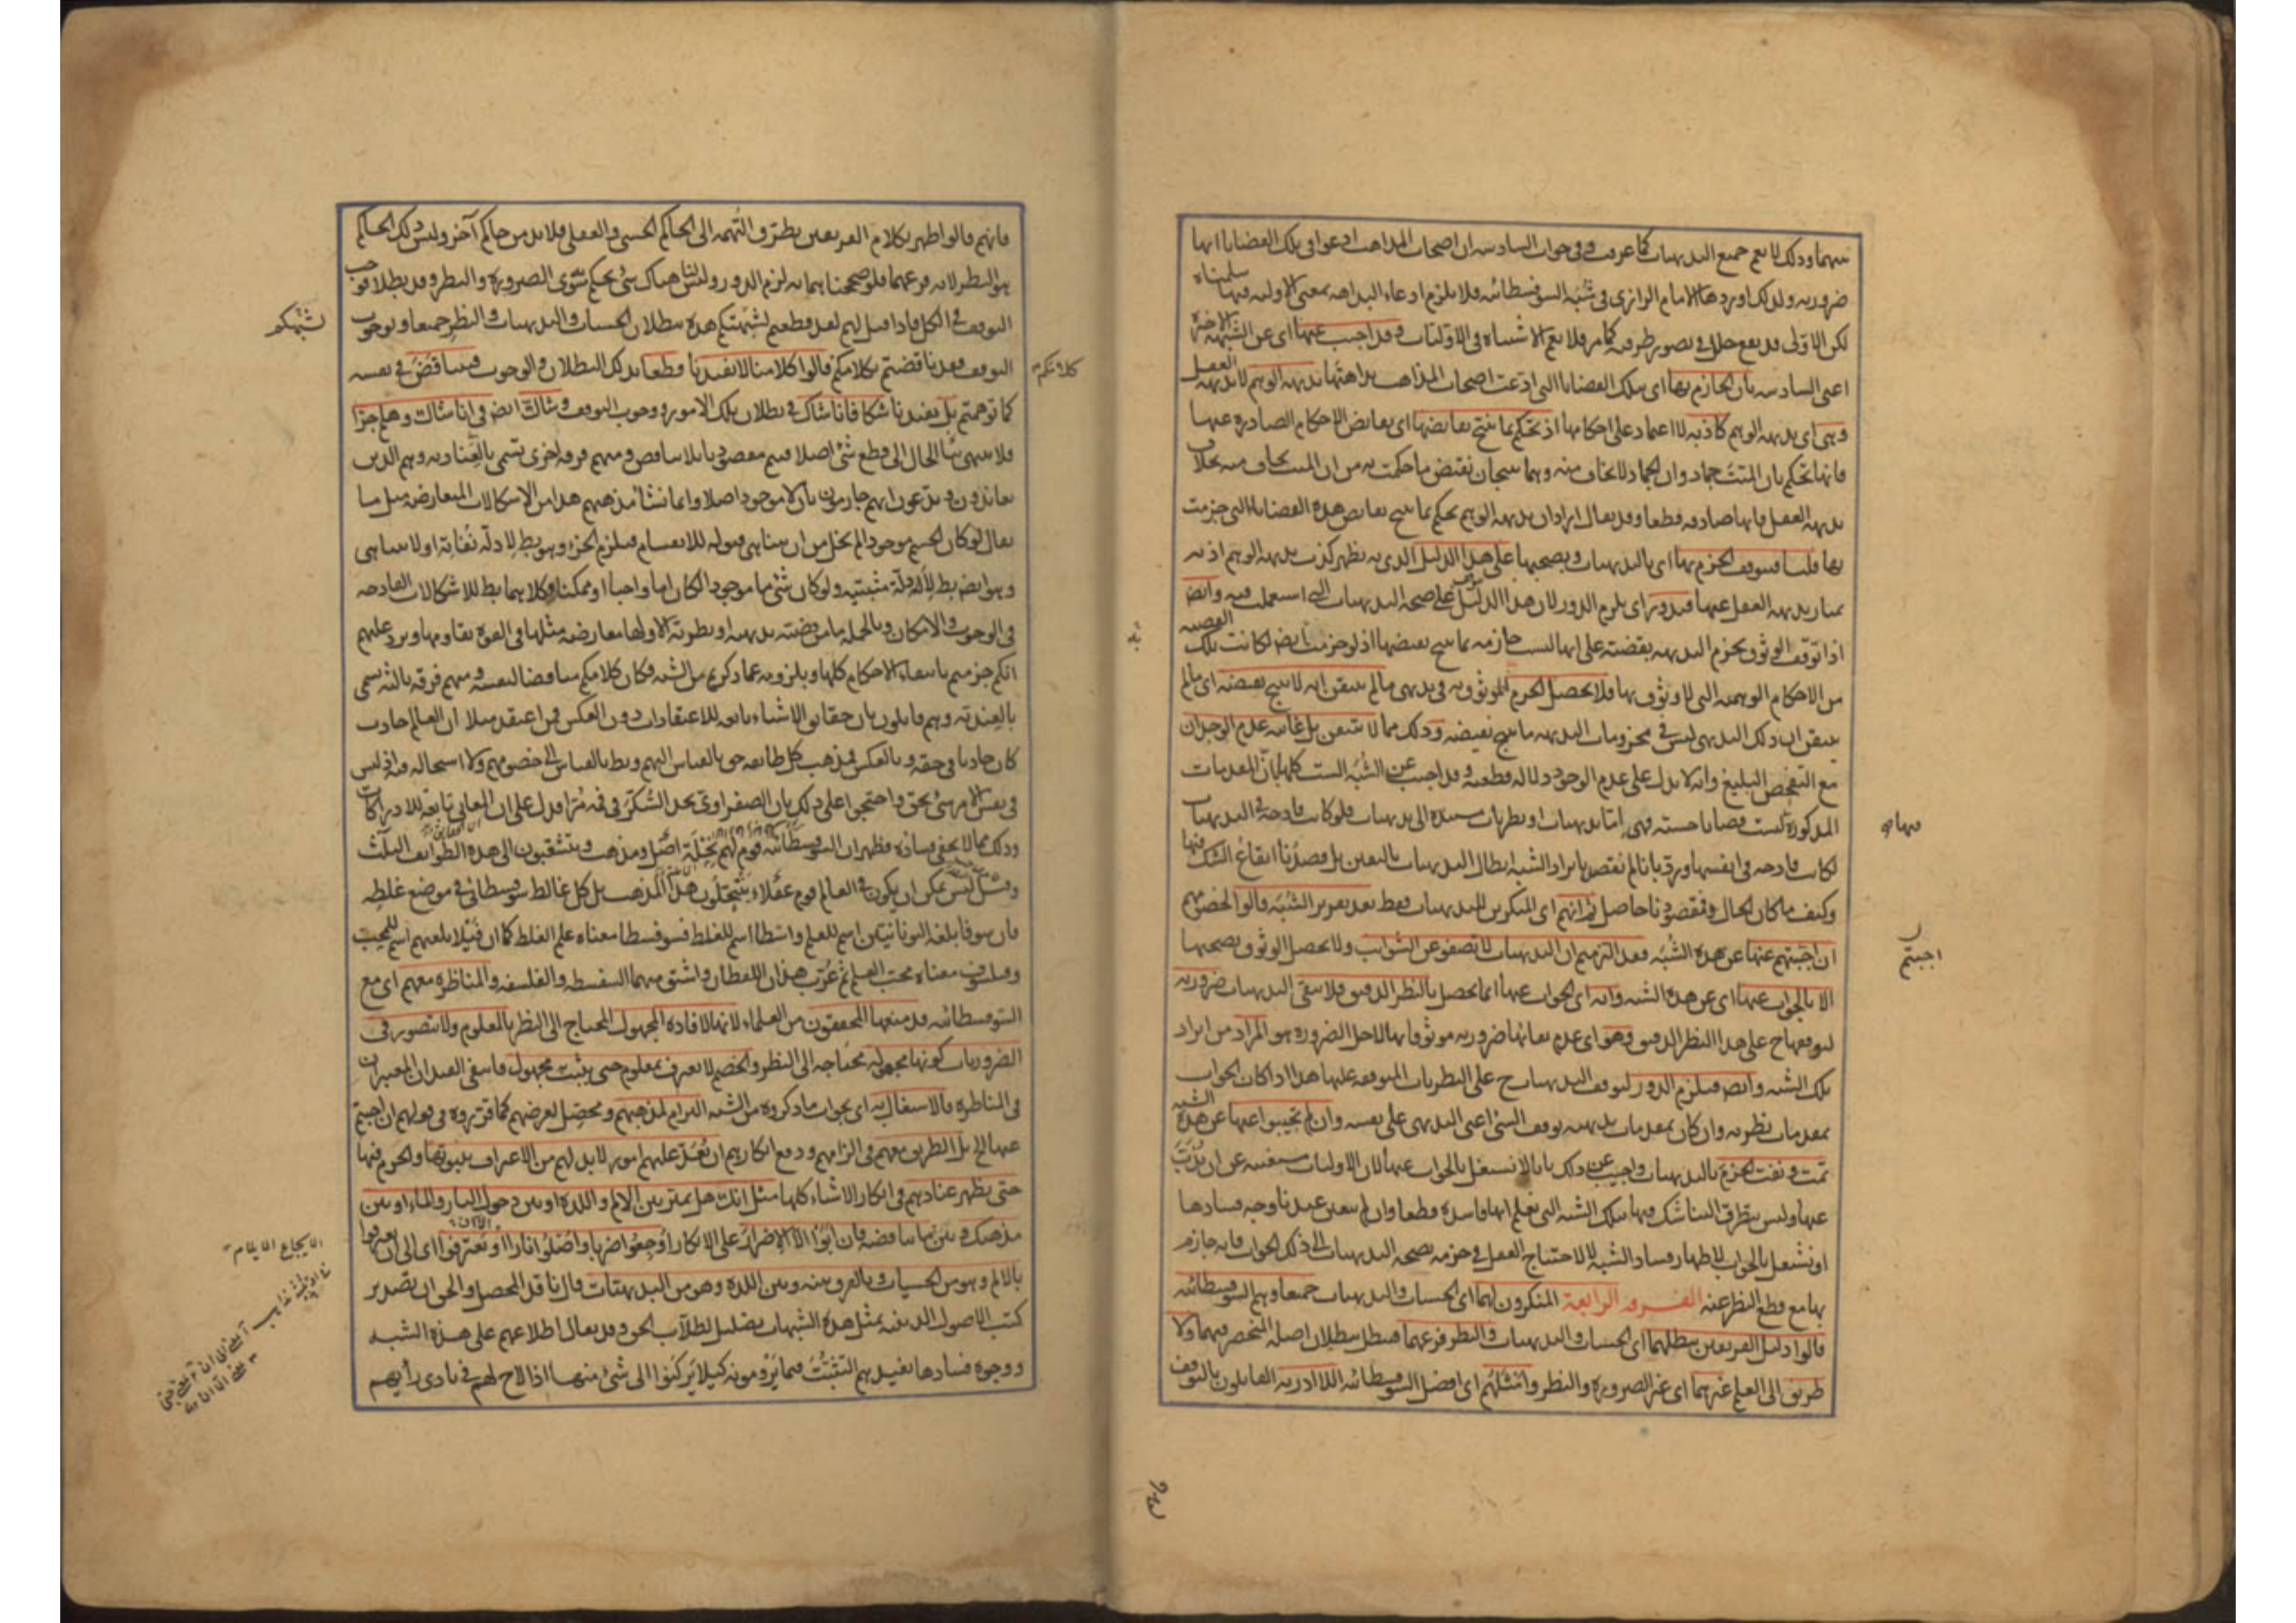 بينهما وذلك لا يعم جميع البديهيات كما عرفت وفي جواب السادسة ان اصحاب المذاهب ادعوا في تلك القضايا انها
ضرورية ولذلك اوردها الامام الرازي في شبه السوفسطائية فلا يلزم ادعاء البداهة بمعنى الاولية فيها سلمناه
لكن الاولى قد يقع خلل في تصور طرفيه كما مر فلا يعم الاشتباه في الاوليات وقد اجيب عنها اى عن الشبهة الاخيرة
اعنى السادسة بان الجازم بها اى بتلك القضايا التى ادعت اصحاب المذاهب بداهتها بديهة الوهم لا بديهة العقل
وهى اى بديهة الوهم كاذبة لا اعتماد على احكامها اذ تحكم بما ينتج نقايضها اى نقايض الاحكام الصادرة عنها
فانها تحكم بان الميت جماد وان الجماد لا يخاف منه وهما ينتجان نقيض ما حكمت به من ان الميت يخاف منه بخلاف
بديهة العقل فانها صادقة قطعا وقد يقال اراد ان بديهة الوهم تحكم بما ينتج نقايض هذه القضايا التى جزمت
بها قلنا فيتوقف الجزم بها اى بالبديهيات وبصحتها على هذا الدليل الذى به يظهر كذب بديهة الوهم اذ به
يمتاز بديهة العقل عنها فيدور اى يلزم الدور لان هذا الدليل يتوقف على صحة البديهيات التى استعملت فيه وايضا
اذا توقف الوثوق بجزم البديهة بقضية على انها ليست جازمة بما ينتج نقيضها اذ لو جزمت بما ينتج نقيضها لكانت تلك القضية
من الاحكام الوهمية التى لا وثوق بها فلا يحصل الجزم الموثوق به في بديهى ما لم يتيقن انه لا ينتج نقيضه اى ما لم
يتيقن ان ذلك البديهى ليس في مجزومات البديهة ما ينتج نقيضه وذلك مما لا يتيقن بل غايته عدم الوجدان
مع التفحص البليغ وانه لا يدل على عدم الوجود دلالة قطعية وقد اجيب عن الشبه الست كلها بان المقدمات
المذكورة ليست قضايا حسية فهى اما بديهيات او نظريات مستندة الى بديهيات فلو كانت قادحة في البديهيات
لكانت قادحة في انفسها ورد بانا لم نقصد بايراد الشبه ابطال البديهيات باليقين بل قصدنا ايقاع الشك فيها
وكيف ما كان الحال فمقصودنا حاصل ثم انهم اى المنكرين للبديهيات فقط بعد تقرير الشبه قالوا لخصومهم
ان اجبتم عنها عن هذه الشبه فقد التزمتم ان البديهيات لا تصفو عن الشوائب ولا يحصل الوثوق بصحتها
الا بالجواب عنها اى عن هذه الشبه وانه اى الجواب عنها انما يحصل بالنظر الدقيق فلا يبقى البديهيات ضرورية
لتوقفها ح على هذا النظر الدقيق وهو اى عدم بقائها ضرورية موثوقا بها لاجل الضرورة هو المراد من ايراد
تلك الشبه وايضا فيلزم الدور لتوقف البديهيات ح على النظريات المتوقفة عليها هذا اذا كان الجواب
بمقدمات نظرية وان كان بمقدمات بديهية توقف الشئ اعنى البديهى على نفسه وان لم تجيبوا عنها عن هذه الشبه
تمت ونفت الجزم بالبديهيات واجيب عن ذلك بانا لا نشتغل بالجواب عنها لان الاوليات مستغنية عن ان يذب
عنها وليس يتطرق الينا شك فيها بتلك الشبه التى نعلم انها فاسدة قطعا وان لم يتعين عندنا وجه فسادها
او نشتغل بالجواب لاظهار فساد الشبه لا لاحتياج العقل في جزمه بصحة البديهيات الى ذلك الجواب فانه جازم
بها مع قطع النظر عنه الفرقة الرابعة المنكرون لهما اى الحسيات والبديهيات جميعا وهم السوفسطائية
قالوا دليل الفريقين يبطلهما اى الحسيات والبديهيات والنظر فرعهما فيبطل ببطلان اصله المنحصر فيهما ولا
طريق الى العلم غيرهما اى غير الضرورة والنظر وامثلهم اى افضل السوفسطائية اللاادرية القائلون بالتوقف
فيها هو
اجبتم
فانهم قالوا ظهر بكلام الفريقين تطرق التهمة الى الحاكم الحسى والعقلى فلا بد من حاكم آخر وليس ذلك الحاكم
هو النظر لانه فرعهما فلو صححناهما به لزم الدور وليس لنا هناك شئ يحكم سوى الضرورة والنظر وقد بطلا فوجب
التوقف في الكل فاذا قيل لهم لعد قطعتم بشبهتكم هذه ببطلان الحسيات والبديهيات والنظر جميعا وبوجوب
التوقف فقد ناقضتم بكلامكم قالوا كلامنا لا يفيدنا قطعا بذلك البطلان والوجوب فيتناقض في نفسه
كما توهمتم بل يفيدنا شكا فانا شاك في بطلان تلك الامور ووجوب التوقف وشاك ايضا في انا شاك وهلم جرا
فلا ينتهى بنا الحال الى قطع شئ اصلا فيتم مقصودنا بلا تناقض ومنهم فرقة اخرى تسمى بالعنادية وهم الذين
يعاندون ويدعون انهم جازمون بان لا موجود اصلا وانما نشأ مذهبهم هذا من الاشكالات المتعارضة مثل ما
يقال لو كان الجسم موجودا لم يخل من ان يتناهى قبوله للانقسام فيلزم الجزء وهو بط لادلة نفاته او لا يتناهى
وهو ايضا بط لادلة مثبتيه ولو كان شئ ما موجودا لكان اما واجبا او ممكنا وكلاهما بط للاشكالات القادحة
في الوجوب والامكان وبالجملة ما من قضية بديهية او نظرية الا ولها معارضة مثلها في القوة تقاومها ويرد عليهم
انكم جزمتم بانتفاء الاحكام كلها وبلزومه عما ذكرتم من الشبه فكان كلامكم مناقضا لنفسه ومنهم فرقة ثالثة تسمى
بالعندية وهم قائلون بان حقايق الاشياء تابعة للاعتقادات دون العكس فمن اعتقد مثلا ان العالم حادث
كان حادثا في حقه وبالعكس فمذهب كل طايفة حق بالقياس اليهم وبط بالقياس الى خصومهم ولا استحالة فيه اذ ليس
في نفس الامر شئ بحق واحتجوا على ذلك بان الصفراوى يجد السكر في فمه مرا فدل على ان المعانى تابعة للادراكات
وذلك مما لا يخفى فساده فظهر ان السوفسطائية قوم لهم نحلة اصل ومذهب ويتشعبون الى هذه الطوائف الثلث
وقيل ليس يمكن ان يكون في العالم قوم عقلاء ينتحلون هذا المذهب بل كل غالط سوفسطائى في موضع غلطه
فان سوفا بلغة اليونانيين اسم للعلم واسطا اسم للغلط فسوفسطا معناه علم الغلط كما ان فيلا بلغتهم اسم للمحب
وفيلسوف معناه محب العلم ثم عرب هذان اللفظان واشتق منهما السفسطة والفلسفة والمناظرة معهم اى مع
السوفسطائية قد منعها المحققون من العلماء لانها لافادة المجهول المحتاج الى النظر بالمعلوم ولا يتصور في
الضروريات كونها مجهولة محتاجة الى النظر والخصم لا يعترف بمعلوم حتى يثبت به مجهول فانتفى القيدان المعتبران
في المناظرة فالاشتغال به اى بجواب ما ذكروه من الشبه التزام لمذهبهم ومحصل لغرضهم كما قرروه في قولهم ان اجبتم
عنها الخ بل الطريق معهم في الزامهم ودفع انكارهم ان تعد عليهم امور لا بد لهم من الاعتراف بثبوتها والجزم فيها
حتى يظهر عنادهم في انكار الاشياء كلها مثل انك هل تميز بين الالم واللذة او بين دخول النار والماء او بين
مذهبك وبين ما يناقضه فان ابوا الا الاصرار على الانكار اوجعوا ضربا واصلوا نارا او يعترفوا اى الى ان يعترفوا
بالالم وهو من الحسيات وبالفرق بينه وبين اللذة وهو من البديهيات قال ناقد المحصل والحق ان تصدير
كتب الاصول الدينية بمثل هذه الشبهات تضليل لطلاب الحق وقد يقال اطلاعهم على هذه الشبه
ووجوه فسادها يفيدهم التثبت فيما يرومونه كيلا يركنوا الى شئ منها اذا لاح لهم في بادى رأيهم
كلامكم
بشبهتكم
الايجاع الايلام